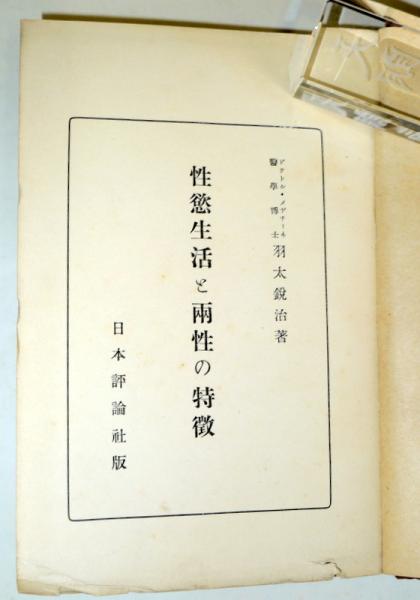 ドクトル・メヂチーネ
醫學博士 羽太鋭治著
性慾生活と兩性の特徴
日本評論社版